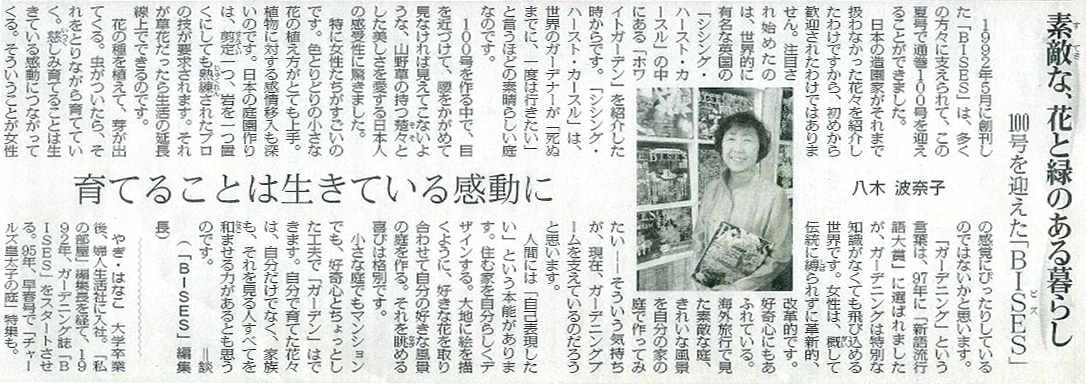 素敵な、花と緑のある暮らし
100号を迎えた「BISES」
ビズ
八木 波奈子
育てることは生きている感動に
1992年5月に創刊し
た「BISES」は、多く
の方々に支えられて、この
夏号で通巻100号を迎え
ることができました。
日本の造園家がそれまで
扱わなかった花々を紹介し
たわけですから、初めから
歓迎されたわけではありま
せん。注目さ
れ始めたの
は、世界的に
有名な英国の
「シシング・
ハースト・カ
ースル」の中
にある「ホワ
イトガーデン」を紹介した
時からです。「シシング・
ハースト・カースル」は、
世界のガーデナーが「死ぬ
までに、一度は行きたい」
と言うほどの素晴らしい庭
なのです。
100号を作る中で、目
を近づけて、腰をかがめて
見なければ見えてこないよ
うな、山野草の持つ楚々と
した美しさを愛する日本人
の感受性に驚きました。
特に女性たちがすごいの
です。色とりどりの小さな
花の植え方がとても上手。
植物に対する感情移入も深
いのです。日本の庭園作り
は、剪定一つ、岩を一つ置
くにしても熟練されたプロ
の技が要求されます。それ
が草花だったら生活の延長
線上でできるのです。
花の種を植えて、芽が出
てくる。虫がついたら、そ
れをとりながら育ててい
く。慈しみ育てることは生
きている感動につながって
くる。そういうことが女性
の感覚にぴったりしている
のではないかと思います。
「ガーデニング」という
言葉は、97年に「新語流行
語大賞」に選ばれました
が、ガーデニングは特別な
知識がなくても飛び込める
世界です。女性は、概して
伝統に縛られずに革新的、
改革的です。
好奇心にもあ
ふれている。
海外旅行で見
た素敵な庭、
きれいな風景
を自分の家の
庭で作ってみ
たい――そういう気持ち
が、現在、ガーデニングブ
ームを支えているのだろう
と思います。
人間には「自己表現した
い」という本能がありま
す。住む家を自分らしくデ
ザインする。大地に絵を描
くように、好きな花を取り
合わせて自分の好きな風景
の庭を作る。それを眺める
喜びは格別です。
小さな庭でもマンション
でも、好奇心とちょっとし
た工夫で「ガーデン」はで
きます。自分で育てた花々
は、自分だけでなく、家族
も、それを見る人すべてを
和ませる力があるとも思う
のです。＝談
（「BISES」編集
長）
やぎ・はなこ 大学卒業
後、婦人生活社に入社。「私
の部屋」編集長を経て、19
92年、ガーデニング誌「B
ISES」をスタートさせ
る。95年、早春号で「チャー
ルズ皇太子の庭」特集も。